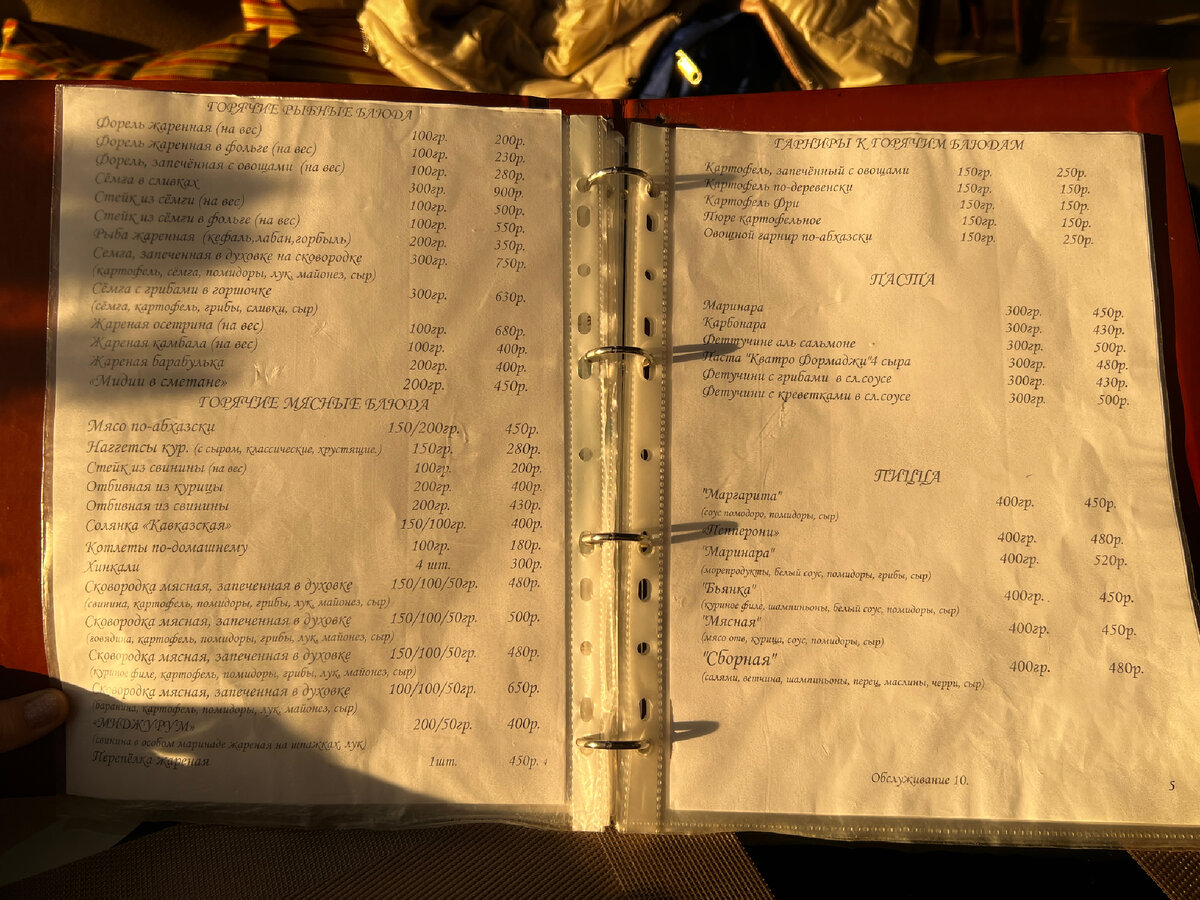 ГОРЯЧИЕ РЫБНЫЕ БЛЮДА
Форель жаренная (на вес) 100гр. 200р.
Форель жаренная в фольге (на вес) 100гр. 230р.
Форель, запечённая с овощами (на вес) 100гр. 280р.
Сёмга в сливках 300гр. 900р.
Стейк из сёмги (на вес) 100гр. 500р.
Стейк из сёмги в фольге (на вес) 100гр. 550р.
Рыба жаренная (кефаль,лабан,горбыль) 200гр. 350р.
Семга, запеченная в духовке на сковородке 300гр. 750р.
(картофель, сёмга, помидоры, лук, майонез, сыр)
Сёмга с грибами в горшочке 300гр. 630р.
(сёмга, картофель, грибы, сливки, сыр)
Жареная осетрина (на вес) 100гр. 680р.
Жареная камбала (на вес) 100гр. 400р.
Жареная барабулька 200гр. 400р.
«Мидии в сметане» 200гр. 450р.
ГОРЯЧИЕ МЯСНЫЕ БЛЮДА
Мясо по-абхазски 150/200гр. 450р.
Наггетсы кур. (с сыром, классические, хрустящие.) 150гр. 280р.
Стейк из свинины (на вес) 100гр. 200р.
Отбивная из курицы 200гр. 400р.
Отбивная из свинины 200гр. 430р.
Солянка «Кавказская» 150/100гр. 400р.
Котлеты по-домашнему 100гр. 180р.
Хинкали 4 шт. 300р.
Сковородка мясная, запеченная в духовке 150/100/50гр. 480р.
(свинина, картофель, помидоры, грибы, лук, майонез, сыр)
Сковородка мясная, запеченная в духовке 150/100/50гр. 500р.
(говядина, картофель, помидоры, грибы, лук, майонез, сыр)
Сковородка мясная, запеченная в духовке 150/100/50гр. 480р.
(куриное филе, картофель, помидоры, грибы, лук, майонез, сыр)
Сковородка мясная, запеченная в духовке 100/100/50гр. 650р.
(баранина, картофель, помидоры, лук, майонез, сыр)
«МИДЖУРУМ» 200/50гр. 400р.
(свинина в особом маринаде жареная на шпажках, лук)
Перепёлка жареная 1шт. 450р.
ГАРНИРЫ К ГОРЯЧИМ БЛЮДАМ
Картофель, запечённый с овощами 150гр. 250р.
Картофель по-деревенски 150гр. 150р.
Картофель Фри 150гр. 150р.
Пюре картофельное 150гр. 150р.
Овощной гарнир по-абхазски 150гр. 250р.
ПАСТА
Маринара 300гр. 450р.
Карбонара 300гр. 430р.
Феттучине аль сальмоне 300гр. 500р.
Паста "Кватро Формаджи"4 сыра 300гр. 480р.
Фетучини с грибами в сл.соусе 300гр. 430р.
Фетучини с креветками в сл.соусе 300гр. 500р.
ПИЦЦА
"Маргарита" 400гр. 450р.
(соус помодоро, помидоры, сыр)
«Пепперони» 400гр. 480р.
"Маринара" 400гр. 520р.
(морепродукты, белый соус, помидоры, грибы, сыр)
"Бьянка" 400гр. 450р.
(куриное филе, шампиньоны, белый соус, помидоры, сыр)
"Мясная" 400гр. 450р.
(мясо отв, курица, соус, помидоры, сыр)
"Сборная" 400гр. 480р.
(салями, ветчина, шампиньоны, перец, маслины, черри, сыр)
Обслуживание 10.
5